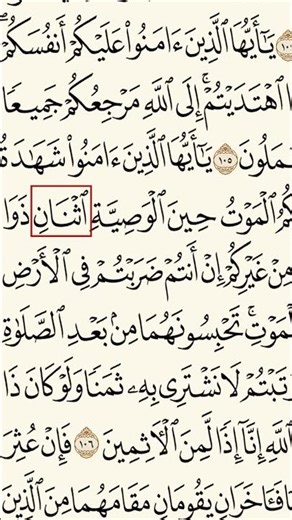 ١٠٤ يَٰٓأَيُّهَا ٱلَّذِينَ ءَامَنُوا۟ عَلَيْكُمْ أَنفُسَكُمْ
ٱهْتَدَيْتُمْ ۚ إِلَى ٱللَّهِ مَرْجِعُكُمْ جَمِيعًا
١٠٥ يَٰٓأَيُّهَا ٱلَّذِينَ ءَامَنُوا۟ شَهَٰدَةُ
ٱلْمَوْتُ حِينَ ٱلْوَصِيَّةِ ٱثْنَانِ ذَوَا
مِنْ غَيْرِكُمْ إِنْ أَنتُمْ ضَرَبْتُمْ فِى ٱلْأَرْضِ
لْمَوْتِ ۚ تَحْبِسُونَهُمَا مِنۢ بَعْدِ ٱلصَّلَوٰةِ
رْتَبْتُمْ لَا نَشْتَرِى بِهِۦ ثَمَنًا وَلَوْ كَانَ ذَا
ٱللَّهِ إِنَّآ إِذًا لَّمِنَ ٱلْءَاثِمِينَ ١٠٦ فَإِنْ عُثِرَ
فَـَٔاخَرَانِ يَقُومَانِ مَقَامَهُمَا مِنَ ٱلَّذِينَ